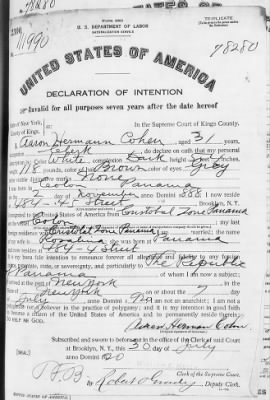 78280
TRIPLICATE
U. S. DEPARTMENT OF LABOR
NATURALIZATION SERVICE
11990
78280
UNITED STATES OF AMERICA
DECLARATION OF INTENTION
Invalid for all purposes seven years after the date hereof
State of New York,
County of Kings,
In the Supreme Court of Kings County.
Aaron Hermann Cohen, aged 31 years,
occupation Clerk, do declare on oath that my personal
description is: Color White, complexion Dark, height 5 feet inches,
weight 118 pounds, color of hair Brown, color of eyes Gray
other visible distinctive marks None
Colon Panama
on the 2 day of November, anno Domini 1888; I now reside
at 45 Street, Brooklyn, N.Y.
I emigrated to the United States of America from Cristobal Zone Panama
; my last
Cristobal Zone Panama; I am married; the name
; she was born at Panama
and now resides at Street
It is my bona fide intention to renounce forever all allegiance and fidelity to any foreign
prince, potentate, state, or sovereignty, and particularly to The Republic
of Panama, of whom I am now a subject;
I arrived at the port of New York, in the
State of New York, on or about the 7 day
of July, anno Domini 1920; I am not an anarchist; I am not a
polygamist nor a believer in the practice of polygamy; and it is my intention in good faith
to become a citizen of the United States of America and to permanently reside therein:
SO HELP ME GOD.
Aaron Herman Cohen
Subscribed and sworn to before me in the office of the Clerk of said Court
at Brooklyn, N. Y., this 30 day of July
anno Domini 1920
[SEAL.]
Clerk of the Supreme Court.
Deputy Clerk.